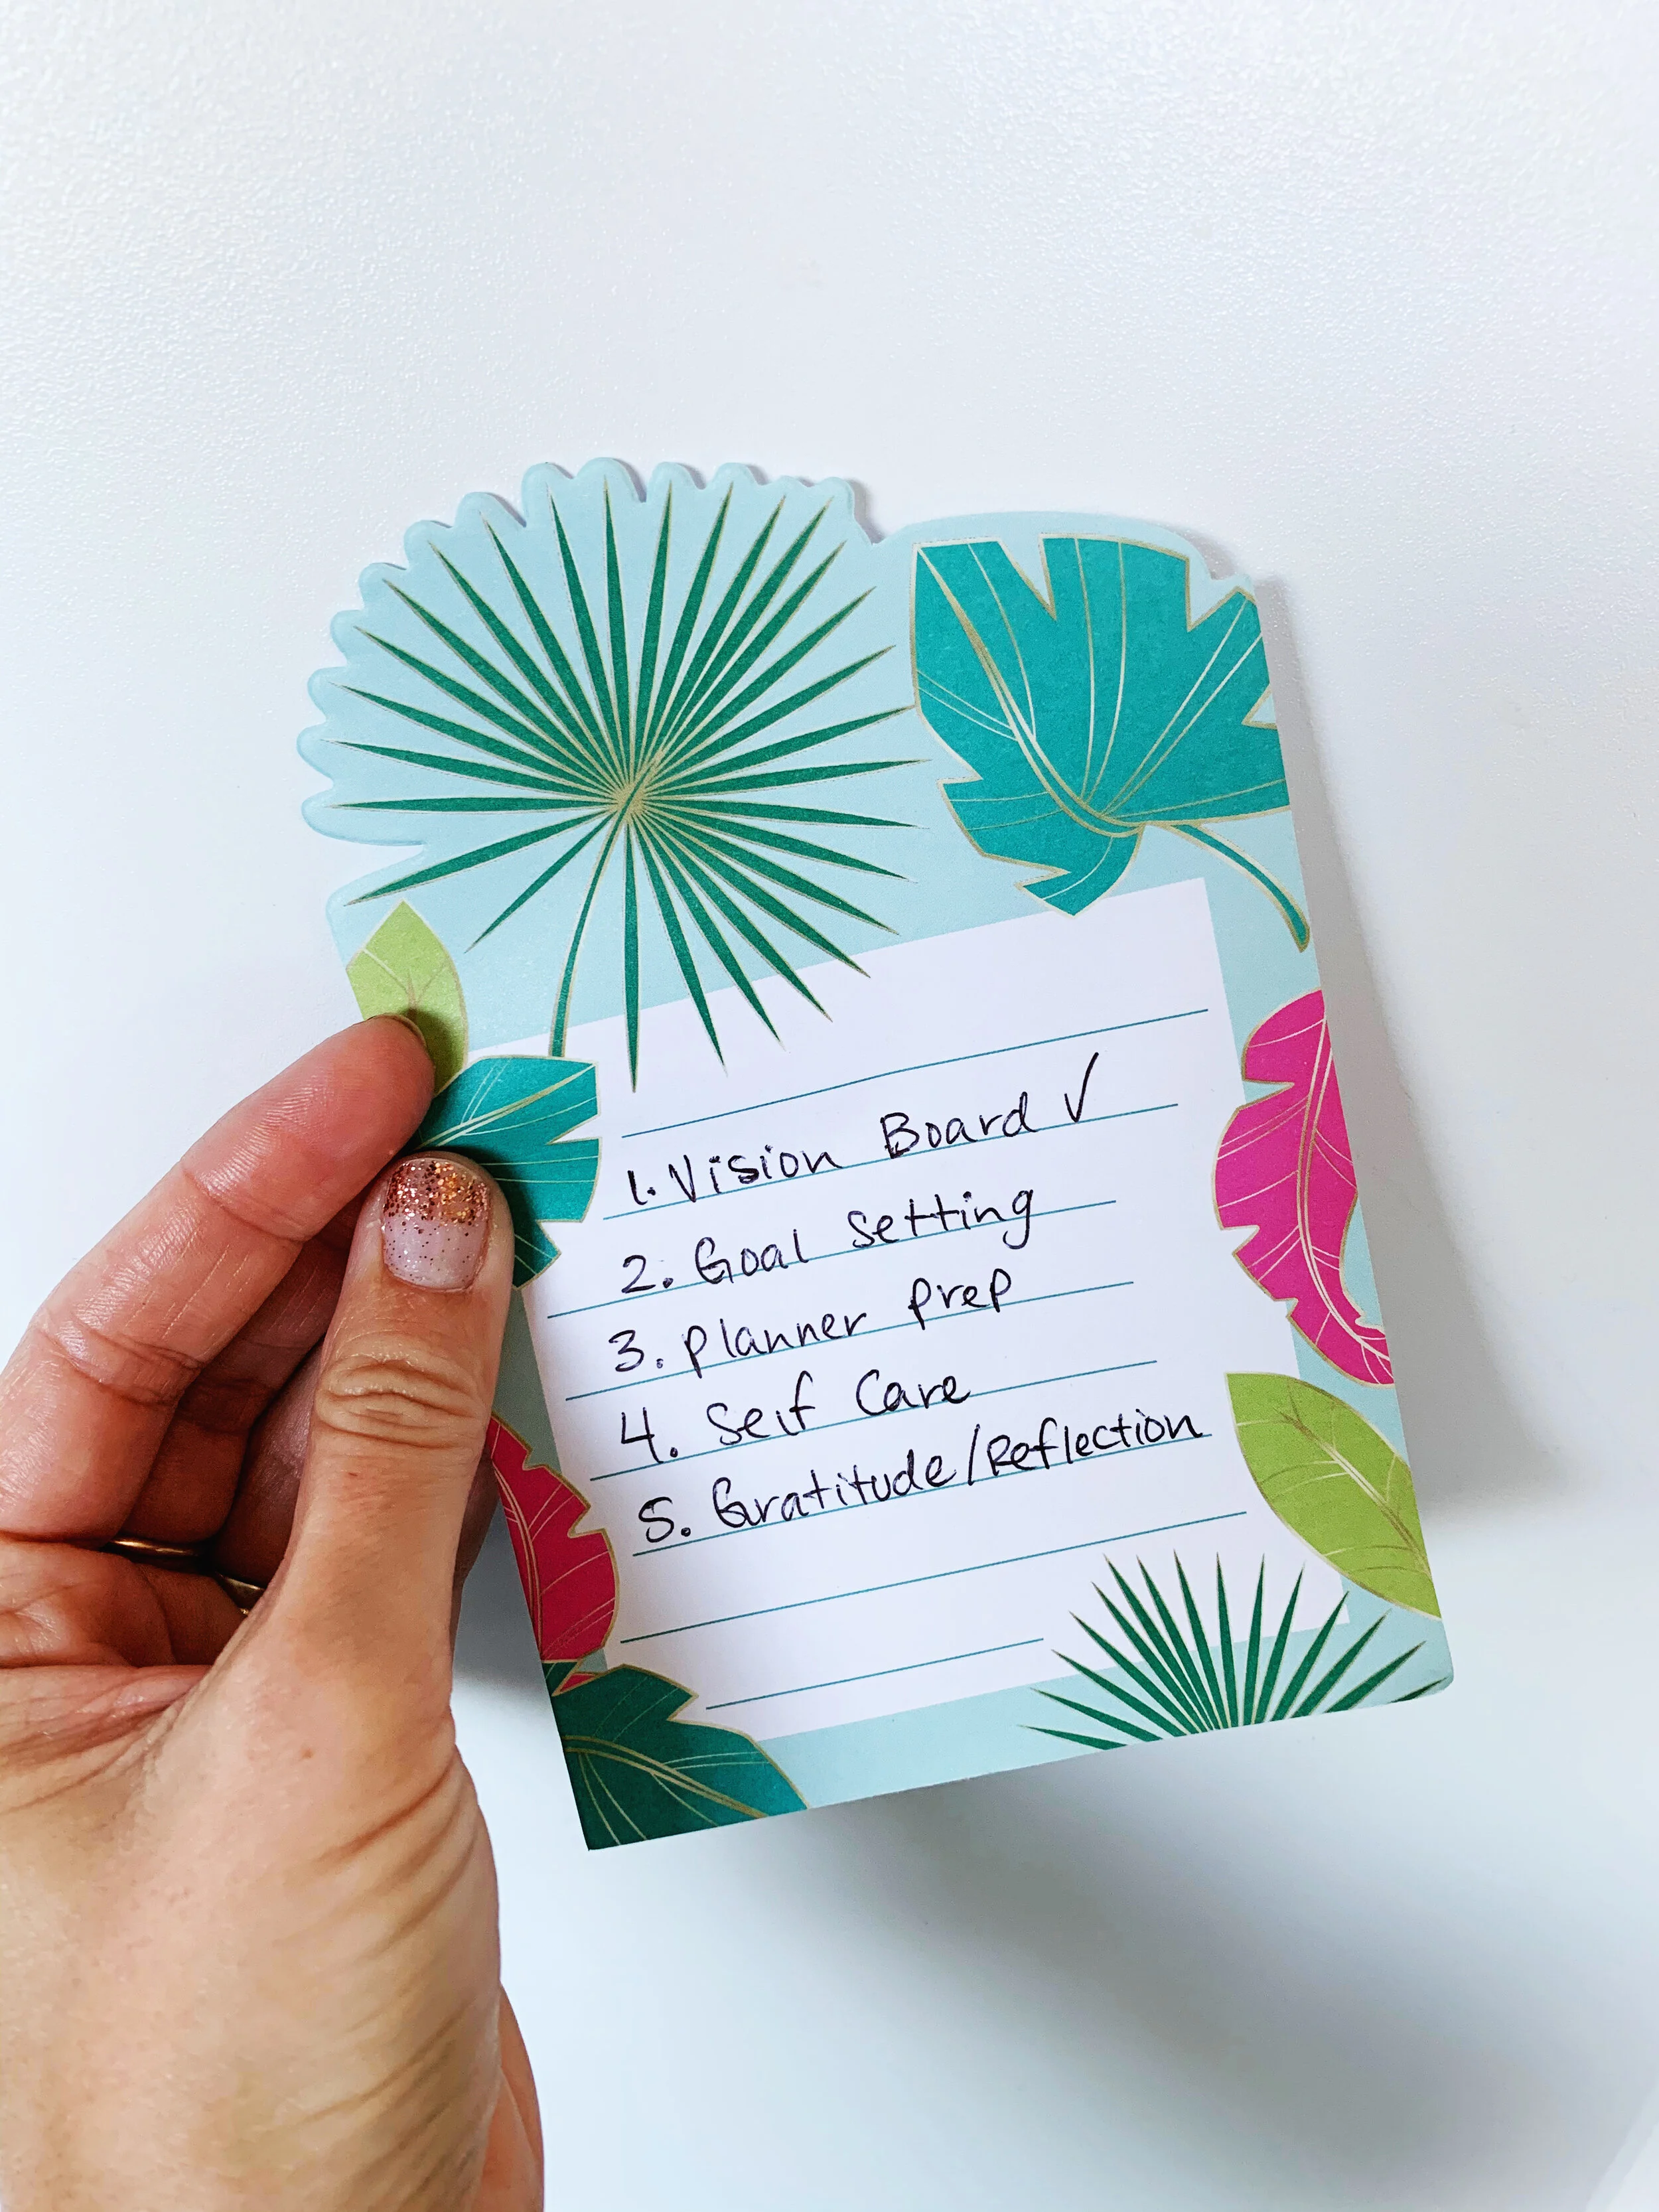 1. Vision Board ✓
2. Goal Setting
3. Planner Prep
4. Self Care
5. Gratitude/Reflection